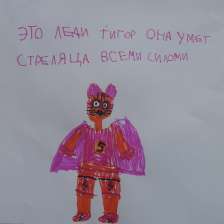 ЭТО ЛЕДИ ТИГОР ОНА УМЕТ
СТРЕЛЯЦА ВСЕМИ СИЛОМИ
5